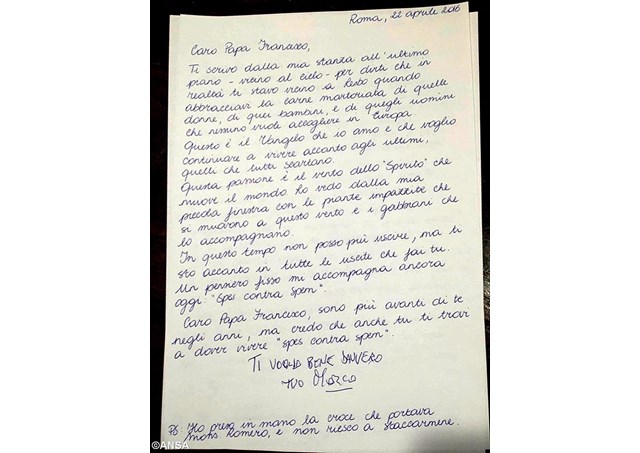 Roma, 22 aprile 2016
Caro Papa Francesco,
Ti scrivo dalla mia stanza all'ultimo
piano - vicino al cielo - per dirti che in
realtà ti stavo vicino a Lesbo quando
abbracciavi la carne martoriata di quelle
donne, di quei bambini, e di quegli uomini
che nessuno vuole accogliere in Europa.
Questo è il Vangelo che io amo e che voglio
continuare a vivere accanto agli ultimi,
quelli che tutti scartano.
Questa passione è il vento dello "Spirito" che
muove il mondo. Lo vedo dalla mia
piccola finestra con le piante impazzite che
si muovono a questo vento e i gabbiani che
lo accompagnano.
In questo tempo non posso più uscire, ma ti
sto accanto in tutte le uscite che fai tu.
Un pensiero fisso mi accompagna ancora
oggi: "Spes contra Spem".
Caro Papa Francesco, sono più avanti di te
negli anni, ma credo che anche tu ti trovi
a dover vivere "spes contra spem".
TI VOGLIO BENE DAVVERO
TUO Marco
PS Ho preso in mano la croce che portava
mons Romero, e non riesco a staccarmene.
©ANSA